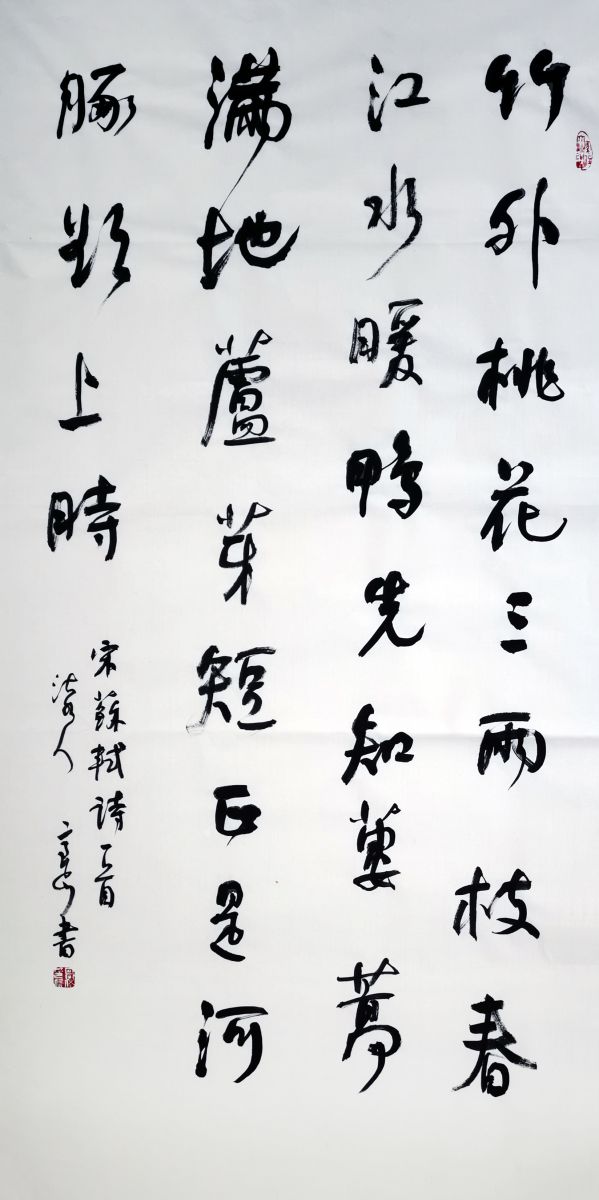 竹外桃花三兩枝春
江水暖鴨先知蔞蒿
滿地蘆芽短正是河
豚欲上時
宋蘇軾詩乙首
人書